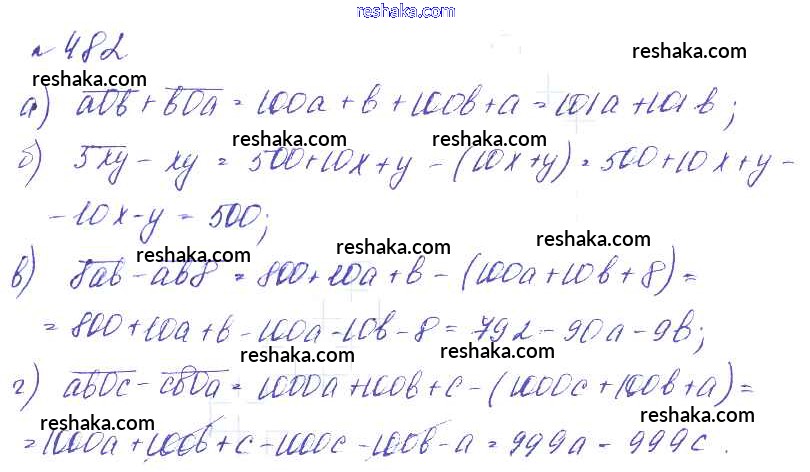 reshaka.com
№ 482
reshaka.com reshaka.com
а) a0b + b0a = 100a + b + 100b + a = 101a + 101b;
reshaka.com reshaka.com
б) 5xy - xy = 500 + 10x + y - (10x + y) = 500 + 10x + y -
reshaka.com
- 10x - y = 500;
reshaka.com reshaka.com
в) 8ab - ab8 = 800 + 10a + b - (100a + 10b + 8) =
= 800 + 10a + b - 100a - 10b - 8 = 792 - 90a - 9b;
reshaka.com reshaka.com
г) ab0c - cb0a = 1000a + 100b + c - (1000c + 100b + a) =
reshaka.com reshaka.com
= 1000a + 100b + c - 1000c - 100b - a = 999a - 999c.
reshaka.com